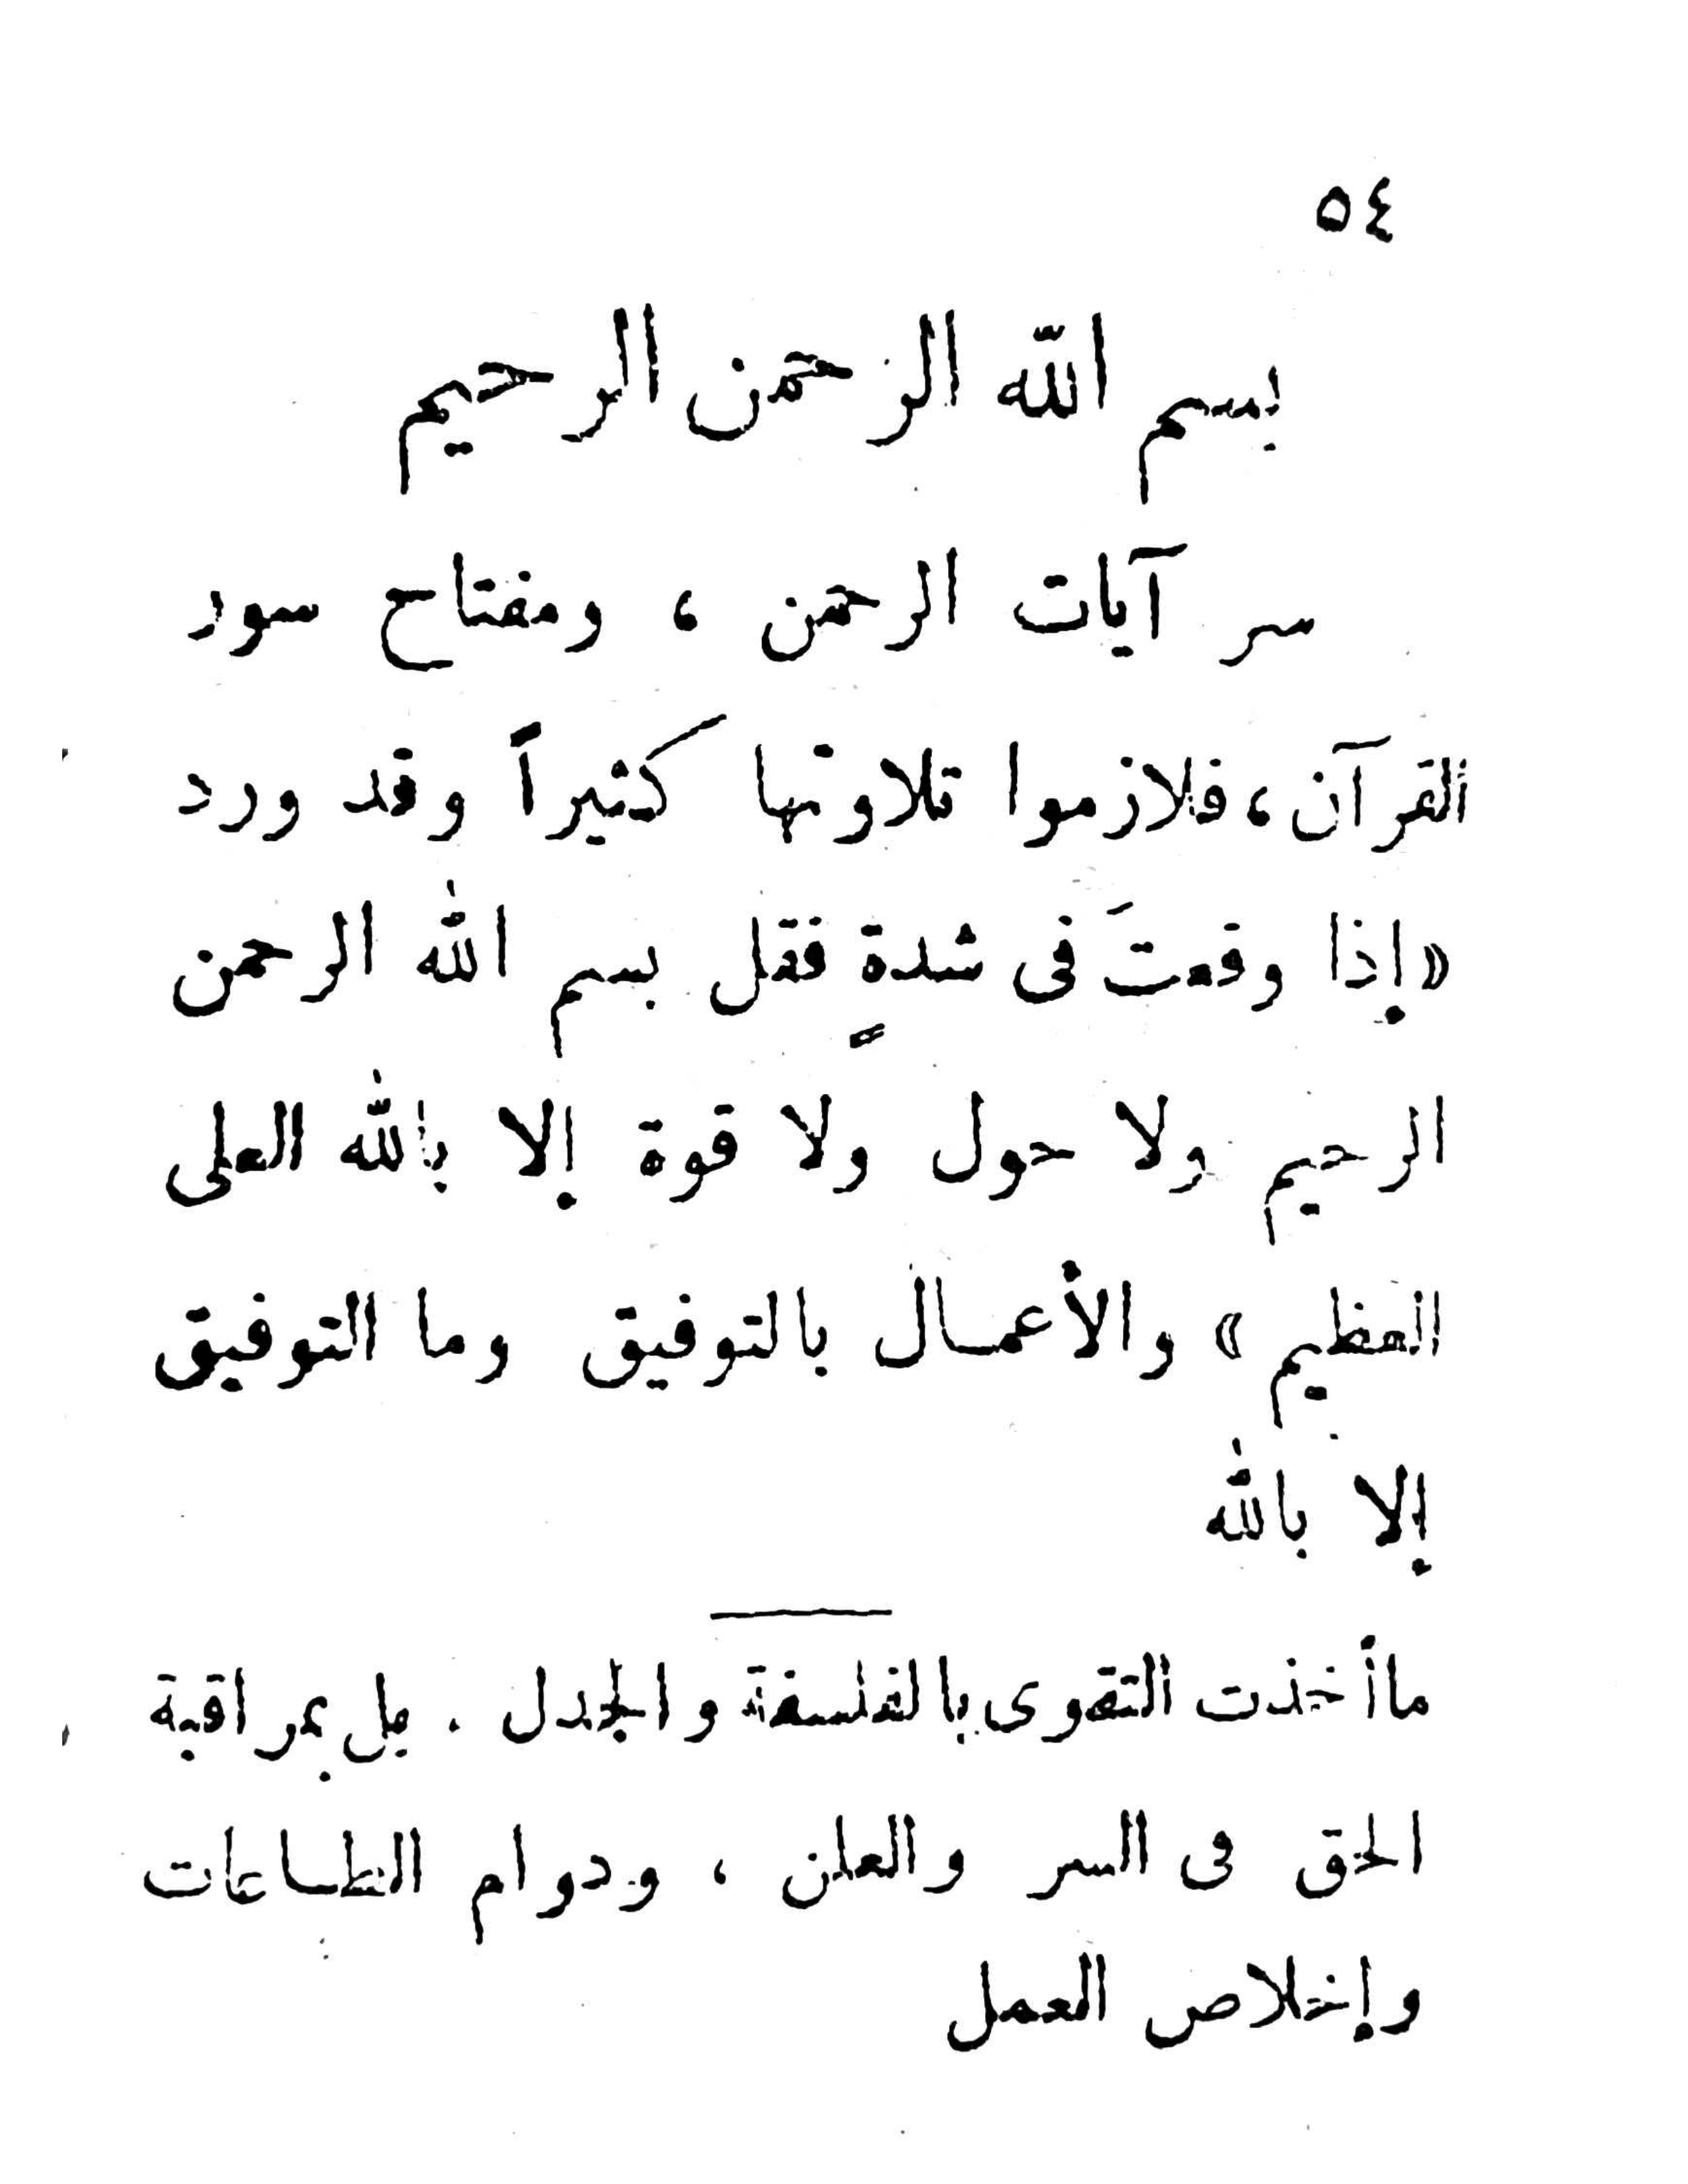 ٥٤
بسم الله الرحمن الرحيم
سر آيات الرحمن ، ومفتاح سور
القرآن ، فلازموا تلاوتها كثيراً وقد ورد
«إذا وقعتَ فى شدةٍ فقل بسم الله الرحمن
الرحيم ولا حول ولا قوة إلا بالله العلى
العظيم » والأعمـال بالتوفيق وما التوفيق
إلا بالله
ماأخذت التقوى بالفلسفة والجدل . بل بمراقبة
الحق فى السر والعلن ، ودوام الطـاعات
وإخلاص العمل